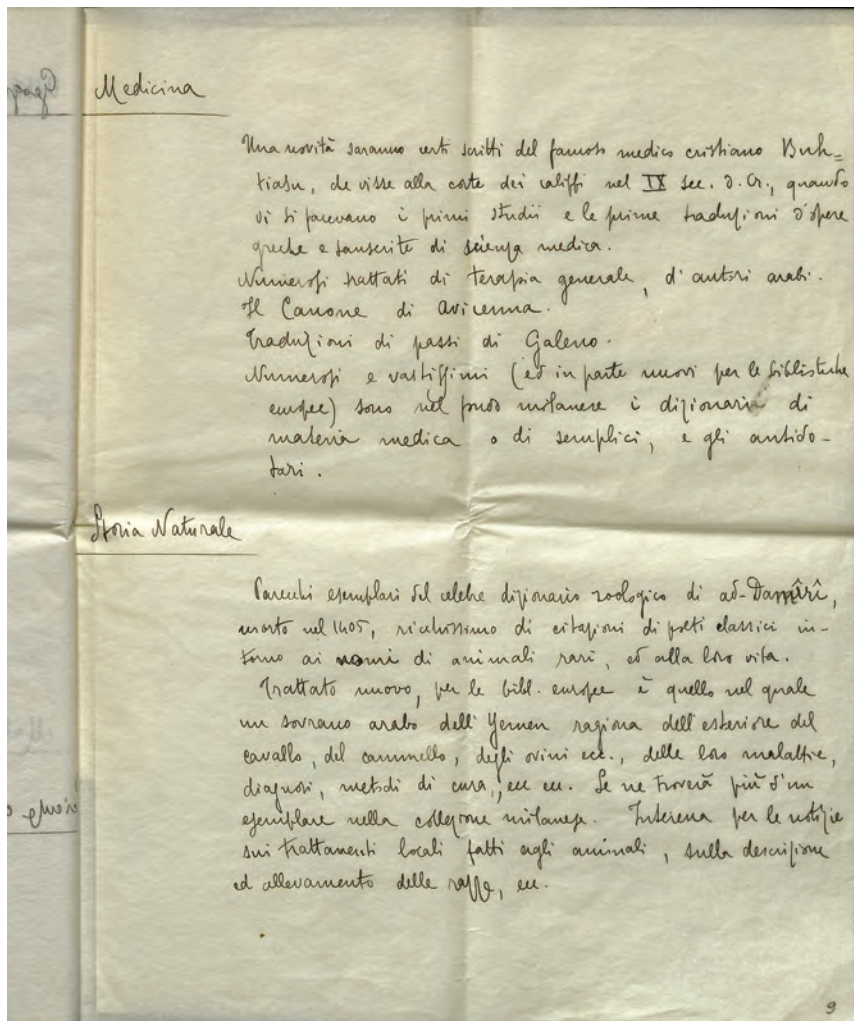 Medicina
Una novità saranno certi scritti del famoso medico cristiano Buh=
tiasu, che visse alla corte dei califfi nel IX sec. d. Cr., quando
vi si facevano i primi studii e le prime traduzioni d'opere
greche e sanscrite di scienza medica.
Numerosi trattati di terapia generale, d'autori arabi.
Il Canone di Avicenna.
Traduzioni di passi di Galeno.
Numerosi e vastissimi (ed in parte nuovi per le biblioteche
europee) sono nel fondo milanese i dizionarii di
materia medica o di semplici, e gli antido-
tari.
Storia Naturale
Parecchi esemplari del celebre dizionario zoologico di ad-Damîrî,
morto nel 1405, ricchissimo di citazioni di poeti classici in-
torno ai nomi di animali rari, ed alla loro vita.
Trattato nuovo, per le bibl. europee è quello nel quale
un sovrano arabo dell'Yemen ragiona dell'esteriore del
cavallo, del cammello, degli ovini ecc., delle loro malattie,
diagnosi, metodi di cura, ecc ecc. Se ne troverà più d'un
esemplare nella collezione milanese. Interessa per le notizie
sui trattamenti locali fatti agli animali, sulla descrizione
ed allevamento delle razze, ecc.
9